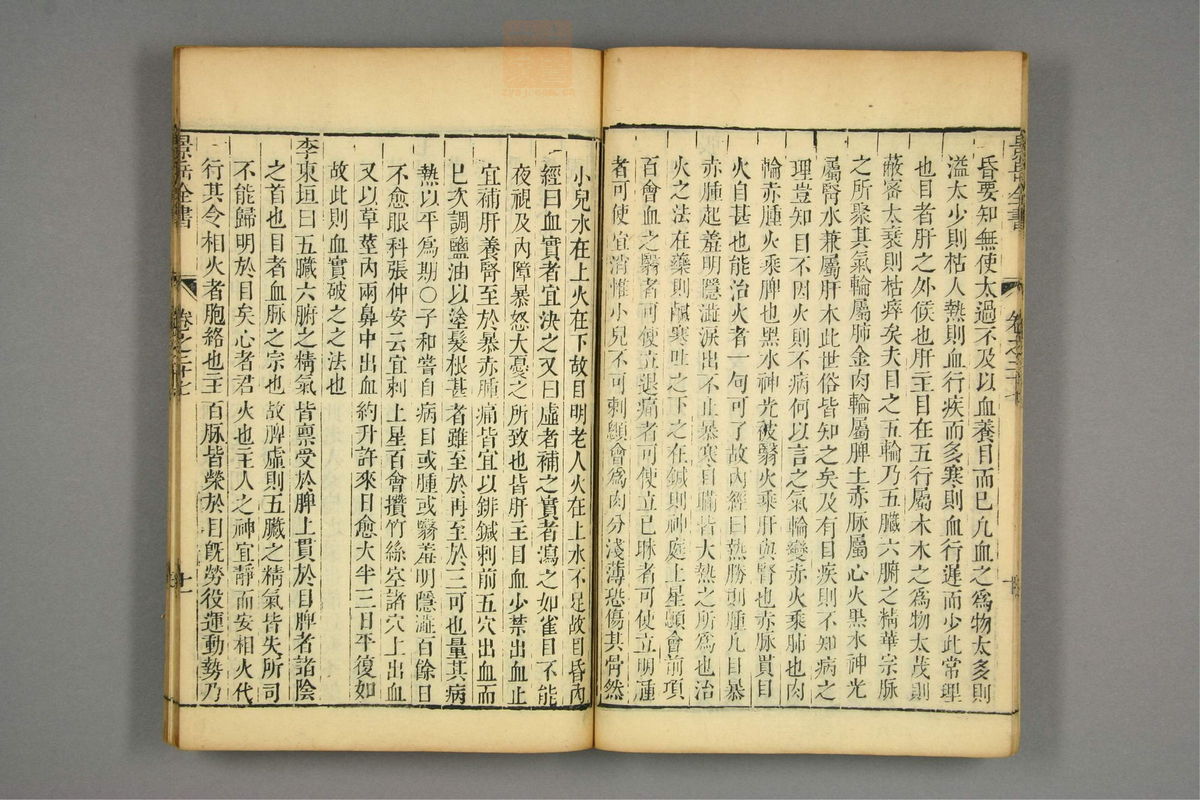 昏要知無使太過不及以血養目而已凡血之爲物太多則
溢太少則枯人熱則血行疾而多寒則血行遲而少此常理
也目者肝之外候也肝主目在五行屬木木之爲物太茂則
蔽密太衰則枯瘁矣夫目之五輪乃五臟六腑之精華宗脉
之所聚其氣輪屬肺金肉輪屬脾土赤脉屬心火黑水神光
屬腎水兼屬肝木此世俗皆知之矣及有目疾則不知病之
理豈知目不因火則不病何以言之氣輪變赤火乘肺也肉
輪赤腫火乘脾也黑水神光被翳火乘肝與腎也赤脉貫目
火自甚也能治火者一句可了故內經曰熱勝則腫凡目暴
赤腫起羞明隱澁淚出不止暴寒目瞞皆大熱之所爲也治
火之法在藥則鹹寒吐之下之在鍼則神庭上星顖會前項
百會血之翳者可使立退痛者可使立已眯者可使立明腫
者可使立消惟小兒不可刺顖會爲肉分淺薄恐傷其骨然
小兒水在上火在下故目明老人火在上水不足故目昏內
經曰血實者宜決之又曰虛者補之實者瀉之如雀目不能
夜視及內障暴怒大憂之所致也皆肝主目血少禁出血止
宜補肝養腎至於暴赤腫痛皆宜以鋒鍼刺前五穴出血而
已次調鹽油以塗髮根甚者雖至於再至於三可也量其病
熱以平爲期〇子和嘗自病目或腫或翳羞明隱澁百餘日
不愈眼科張仲安云宜刺上星百會攢竹絲空諸穴上出血
又以草莖內兩鼻中出血約升許來日愈大半三日平復如
故此則血實破之之法也
李東垣曰五臟六腑之精氣皆禀受於脾上貫於目脾者諸陰
之首也目者血脉之宗也故脾虛則五臟之精氣皆失所司
不能歸明於目矣心者君火也主人之神宜靜而安相火代
行其令相火者胞絡也主百脉皆榮於目既勞役運動勢乃
景岳全書
卷之二十七
十
景岳全書
卷之二十七
十一